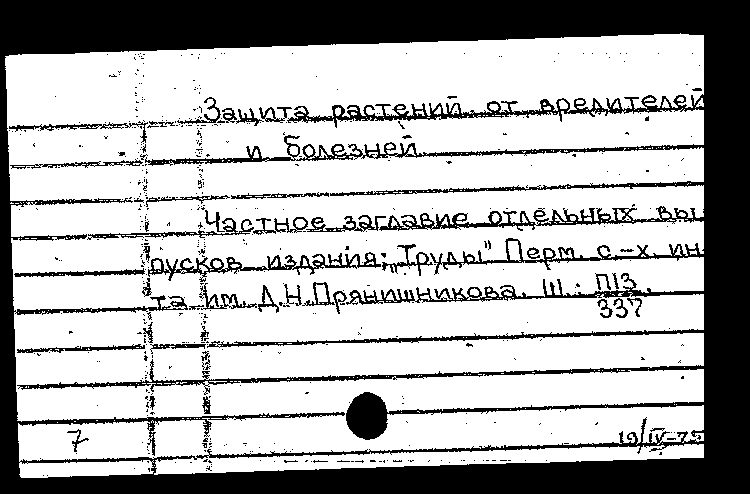 Защита растений от вредителей
и болезней
Частное заглавие отдельных вы
пусков издания: „Труды" Перм. с.-х. ин-
та им. Д.Н.Прянишникова. Ш.: П13.
337
7
19/IV-75